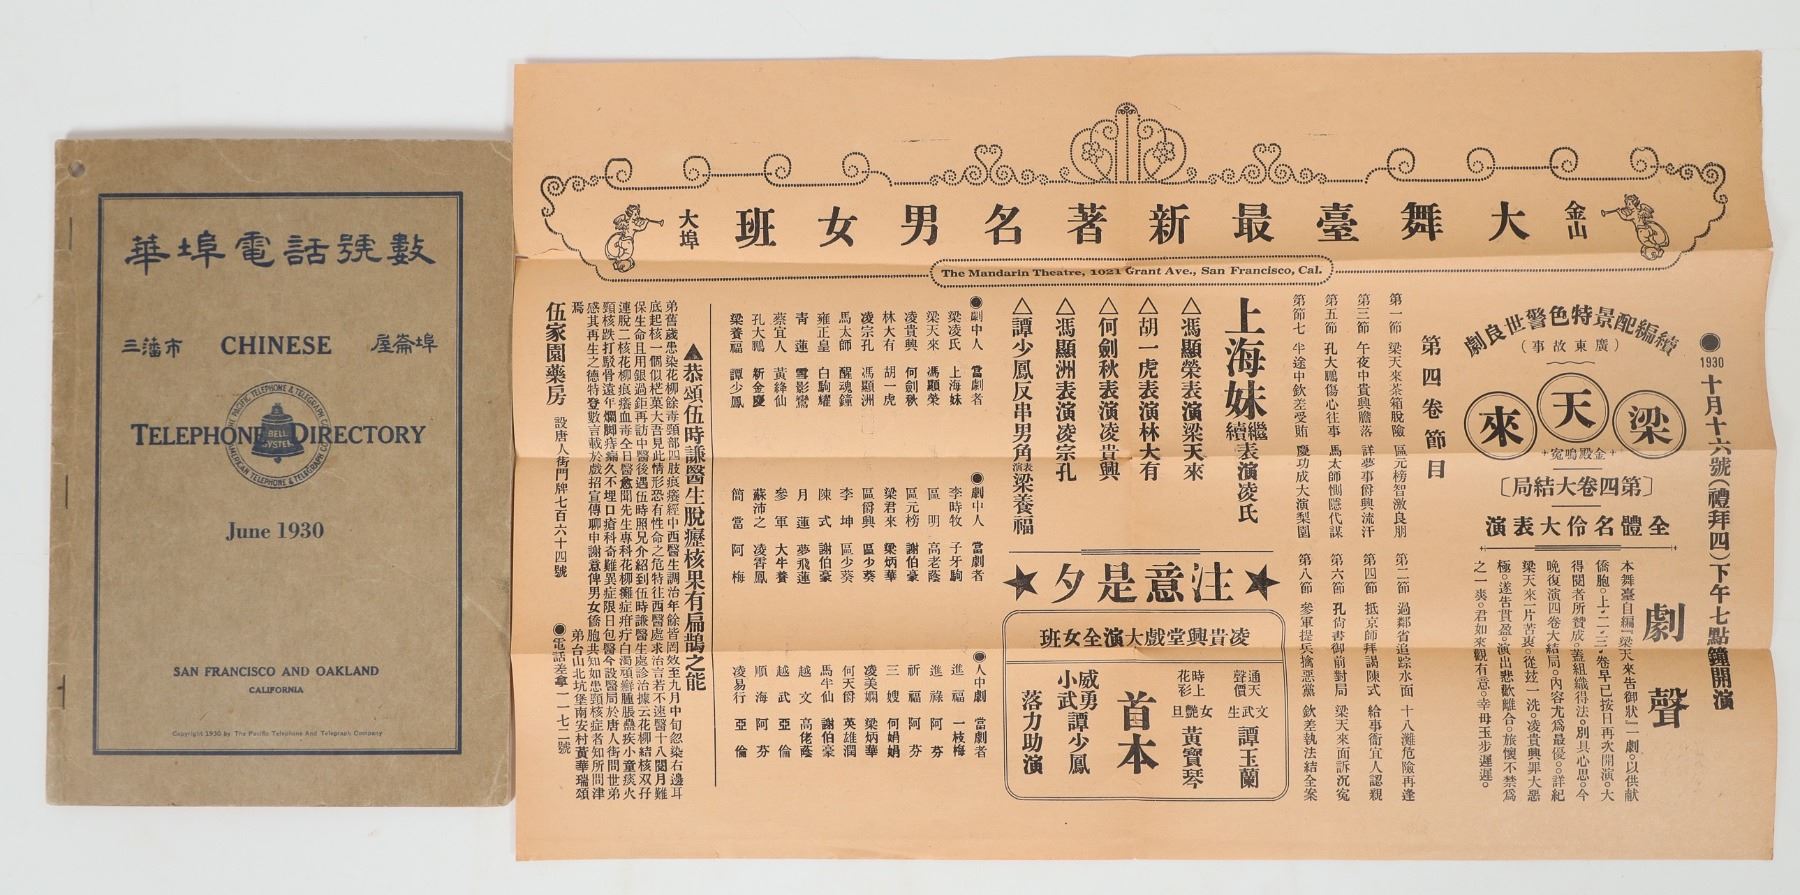 華埠電話號數
三藩市 CHINESE 屋崙埠
TELEPHONE DIRECTORY
THE PACIFIC TELEPHONE & TELEGRAPH CO.
BELL SYSTEM
AMERICAN TELEPHONE & TELEGRAPH CO.
June 1930
SAN FRANCISCO AND OAKLAND
CALIFORNIA
Copyright 1930 by The Pacific Telephone And Telegraph Company
金山 大舞臺最新著名男女班 大埠
The Mandarin Theatre, 1021 Grant Ave., San Francisco, Cal.
●1930十月十六號(禮拜四)下午七點鐘開演
續編配景特色警世良劇
(廣東故事)
梁天來
金殿鳴寃
〔第四卷大結局〕
全體名伶大表演
劇聲
本舞臺自編『梁天來告御狀』一劇。以供献
僑胞。上.二.三.卷早已按日再次開演。大
得閱者所贊成。蓋組織得法。別具心思。今
晚復演四卷大結局。內容尤爲最優。詳紀
梁天來一片苦衷。從玆一洗。凌貴興罪大惡
極。遂告貫盈。演出悲歡離合。旅懷不禁爲
之一爽。君如來觀有意。幸毋玉步遲遲。
第四卷節目
第一節 梁天來茶箱脫險 區元榜智激良朋
第二節 過鄰省追踪水面 十八灘危險再逢
第三節 午夜中貴興膽落 詳夢事爵興流汗
第四節 抵京師拜謁陳式 給事衙宜人認親
第五節 孔大鵬傷心往事 馬太師惻隱代謀
第六節 孔尙書御前對局 梁天來面訴沉寃
第節七 半途中欽差受賄 慶功成大演梨園
第八節 參軍提兵擒惡黨 欽差執法結全案
上海妹繼續表演凌氏
△馮顯榮表演梁天來
△胡一虎表演林大有
△何劍秋表演凌貴興
△馮顯洲表演凌宗孔
△譚少鳳反串男角演表梁養福
★注意是夕★
凌貴興堂戲大演全女班
通天聲價 文武生 譚玉蘭
時上花彩 女艷旦 黃寶琴
首本
威勇小武譚少鳳
落力助演
●劇中人 當劇者
梁凌氏 上海妹
梁天來 馮顯榮
凌貴興 何劍秋
林大有 胡一虎
凌宗孔 馮顯洲
馬太師 醒魂鐘
雍正皇 白駒耀
青蓮 雪影鸞
蔡宜人 黃鋒仙
孔大鵬 新金慶
梁養福 譚少鳳
●劇中人 當劇者
李時牧 子牙駒
區明 高老蔭
區元榜 謝伯豪
梁君來 梁炳華
區爵興 區少葵
李坤 區少葵
陳式 謝伯豪
月蓮 夢飛蓮
參軍 大牛養
蘇沛之 凌霄鳳
簡當 阿梅
●人中劇 當劇者
進福 一枝梅
進祿 阿芬
祈福 阿芬
三嫂 何娟娟
凌美嫻 梁炳華
何天爵 英雄潤
馬半仙 謝伯豪
越文 高佬蔭
越武 亞倫
順海 阿芬
凌易行 亞倫
▲恭頌伍時謙醫生脫癧核果有扁鵲之能
弟舊歲患染花柳餘毒頸部四肢痕癢經中西醫生調治年餘皆罔效至九月中旬忽染右邊耳
底起核一個似棯菓大吾見此情形恐有性命之危特往西醫處求治言若不速醫十八閱月難
保生命且用銀過鉅再訪中醫後遇伍時照兄介紹到伍時謙醫生處診治據云花柳結核双孖
連脫二核花柳痕癢血毒全日醫愈聞先生專科花柳攤症疳疔白濁項癬腫脹蠱疾小童痰火
頸核跌打駁骨遠年爛脚痔瘺久不埋口瘡科奇難異症限日包醫今設醫局於唐人街問世弟
感其再生之德特登數言載於戲招宣傳聊申謝意俾男女僑胞共知如患頸核症者知所問津
焉 弟台山北坑堡南安村黃華瑞頌
伍家園藥房 設唐人街門牌七百六十四號 ●電話差拿一一七二號